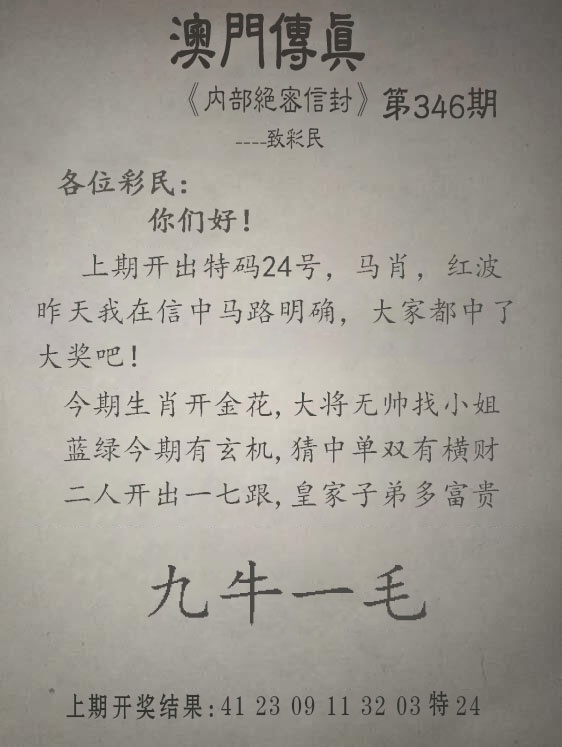 澳門傳眞
《内部絕密信封》第346期
----致彩民
各位彩民:
你们好!
上期开出特码24号，马肖，红波
昨天我在信中马路明确，大家都中了
大奖吧!
今期生肖开金花,大将无帅找小姐
蓝绿今期有玄机,猜中单双有横财
二人开出一七跟,皇家子弟多富贵
九牛一毛
上期开奖结果:41 23 09 11 32 03 特 24